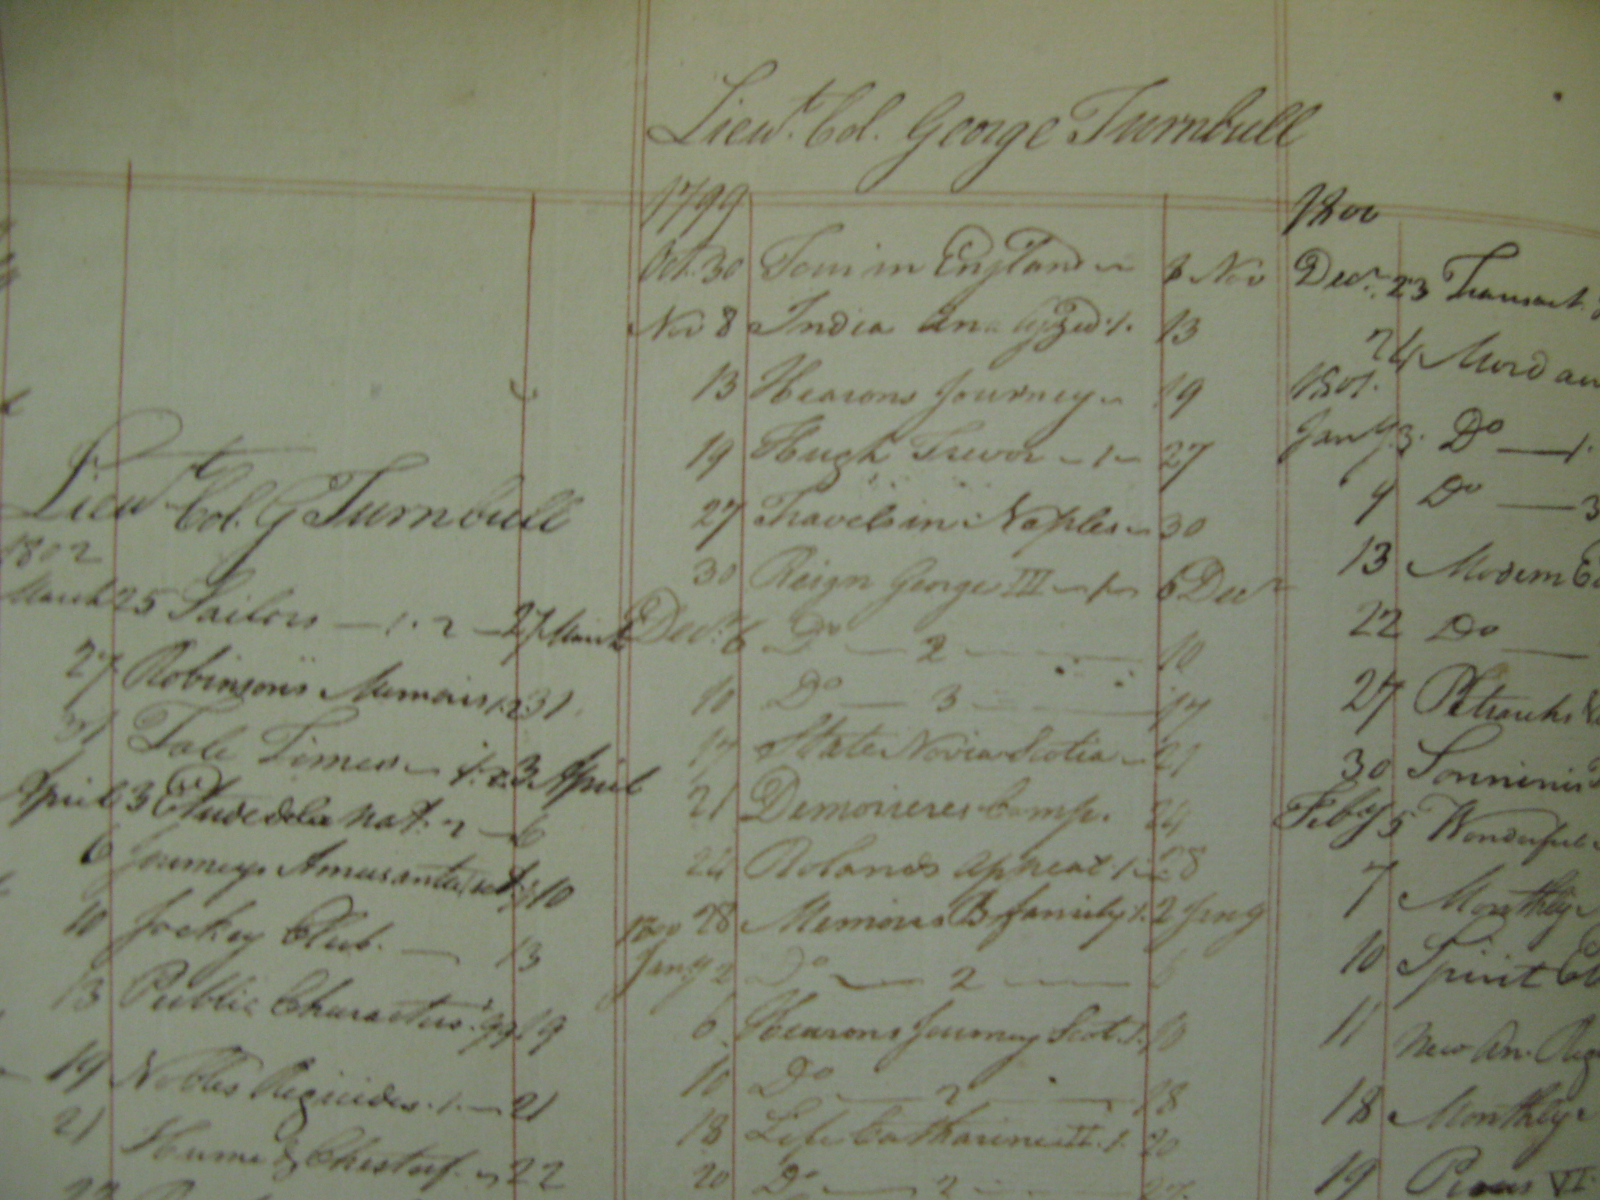 Lieut. Col. G Turnbull
1802
March 25 Sailors — 1. 2 — 27 March
27 Robinsons Memoirs 1.2 31
31 Tale Times — 1. 2. 3 April
April 3 Etude de la Nat. 2 — 6
6 Journeys Amusante 10
10 Jockey Club. — 13
13 Public Characters. 99 19
19 Nobles Regicides. 1. — 21
21 Hume & Chesterf. 22
Lieut. Col. George Turnbull
1799
Oct. 30 Tour in England 8 Nov
Nov 8 India Analyzed. 1. 13
13 Hearons Journey 19
19 Hugh Trevor — 1 — 27
27 Travels in Naples 30
30 Reign George III — 1 — 6 Decr
Decr. 6 Do — 2 — 10
10 Do — 3 — 17
17 State Novia Scotia 21
21 Demoiseres Comp. 24
24 Rolands Appeal. 1 28
1800 28 Memoirs B family 1. 2 Jany
Jany 2 Do — 2 —
6 Hearons Journey Scot. 1. 10
10 Do — 2 — 18
18 Life Catharine II. 1. 20
20 Do — 2 — 27
1800
Decr. 23 Transact.
24 Mord
1801.
Jany 3. Do — 1.
9 Do — 3
13 Modern
22 Do —
27 Petrarchs
30 Sonninis
Feby 5 Wonderful
7 Monthly
10 Spirit
11 New An. Reg
18 Monthly
19 Pius VI